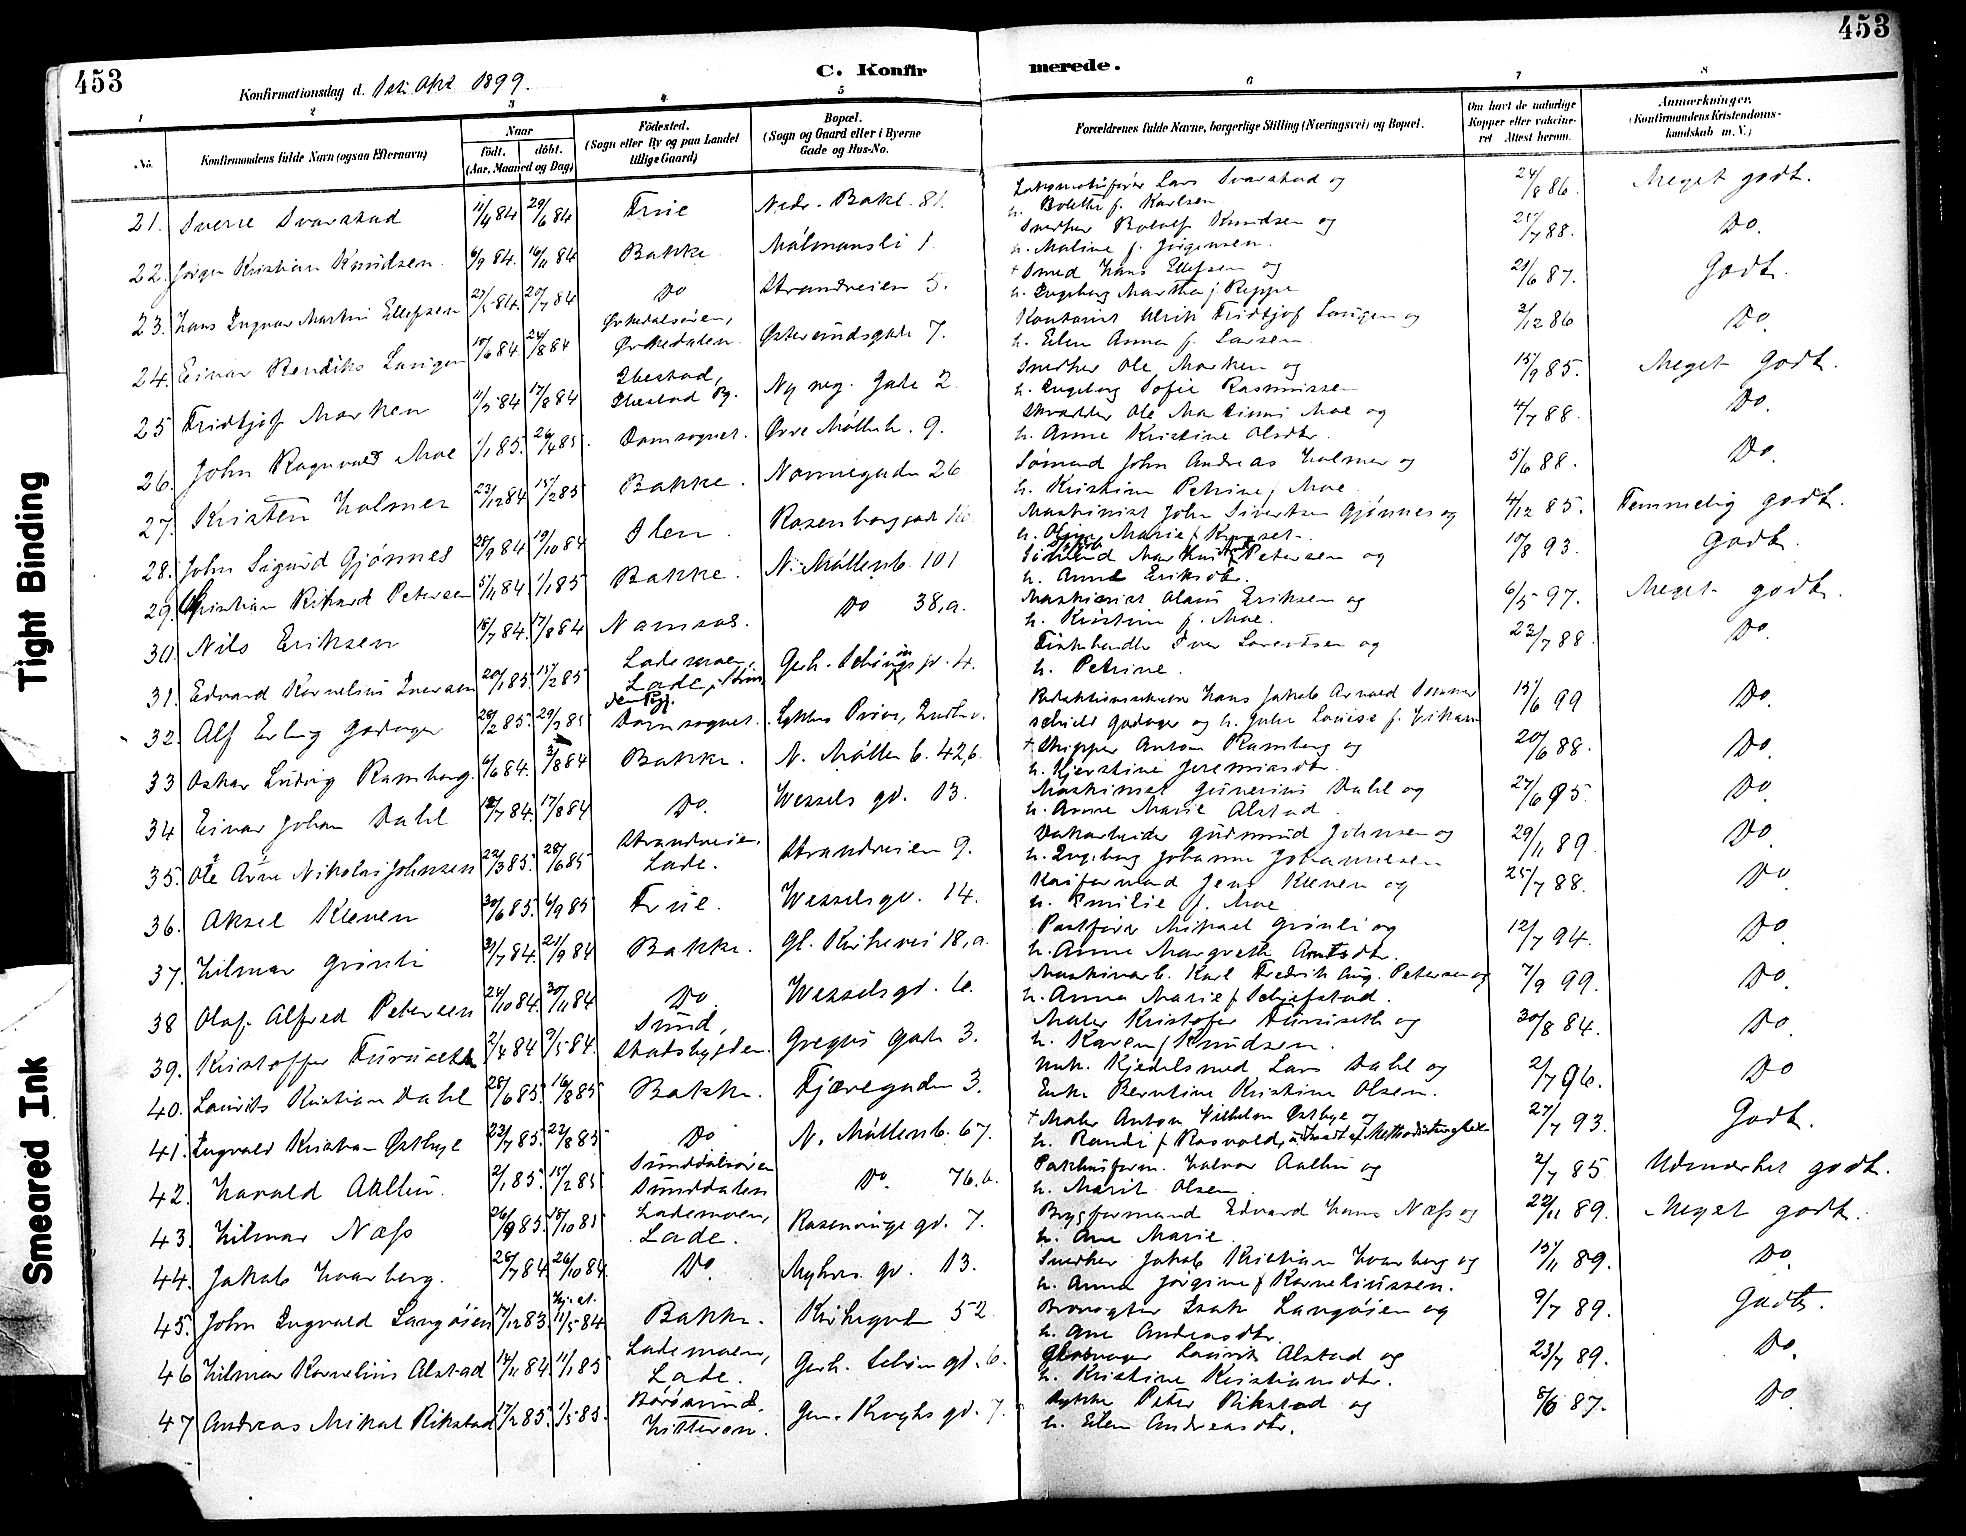 453
453
Tight Binding
Smeared Ink
Konfirmationsdag d. 1ste Okt 1899.
C. Konfirmerede.
1 2 3 4 5 6 7 8
No. Konfirmandens fulde Navn (ogsaa Efternavn) Naar født. døbt. (Aar, Maaned og Dag) Fødested. (Sogn eller By og paa Landet tillige Gaard) Bopæl. (Sogn og Gaard eller i Byerne Gade og Hus-No. Forældrenes fulde Navne, borgerlige Stilling (Næringsvei) og Bopæl. Om havt de naturlige Kopper eller vaccineret Attest herom. Anmærkninger. (Konfirmandens Kristendomskundskab m. V.)
21. Sverre Svarstad 11/4 84 29/6 84 Frue Nedr. Bakl. 81. Lokomotivfører Lars Svarstad og 24/8 86. Meget godt.
h. Bolette f. Karlsen
22. Jørgen Kristian Knudsen. 6/9 84. 16/11 84 Bakke Møllmansli 1. Snedker Knudsen og 25/7 88. Do.
h. Maline f. Jørgensen.
23. Hans Ingvar Martin Ellefsen 27/5 84. 20/7 84 Do Strandveien 5. + Smed Hans Ellefsen og 21/6 87. Godt.
h. Ingeborg Martha f. Reppe
24. Einar Rendiks Lange 10/6 84. 24/8 84 Ørkedalsøien, Ørkedalen. Østersundsgade 7. Kontorist Ulrik Fridtjof og 2/12 86 Do.
h. Elen Anna f. Larsen.
25 Fridtjof Marken 11/5 84 17/8 84 Ibestad, Ibestad Pg. Ny neg. gade 2. Snedker Ole Marken og 15/9 85. Meget godt.
h. Ingeborg Sofie Rasmussen
26. John Ragnvald Moe 1/1 85. 26/4 85. Domsognet. Øvre Møllenb. 9. Skrædder Ole Martinus Moe og 4/7 88. Do.
h. Anne Kristine Olsdtr.
27. Kristen Holmer 23/12 84 15/2 85 Bakke. Nonnegaden 26 Sømand John Andreas Holmer og 5/6 88. Do.
h. Kristine Petrine f. Moe
28. John Sigurd Gjønnes 28/9 84 19/10 84 Ilen. Rosenborggade Maskinist John Sivertsen Gjønnes og 4/12 85. Temmelig godt.
h. Marie f.
29. Kristian Rikard Petersen 5/11 84 1/1 85 Bakke. N. Møllenb. 101 Petersen og 10/8 93. Godt.
h. Anne Eriksdtr.
30. Nils Eriksen 18/7 84. 17/8 84 Namsos. Do 38, a. Maskinist Olaus Eriksen og 6/5 97. Meget godt.
h. Kristine f. Moe.
31. Edvard Kornelius Iversen 20/1 85. 15/2 85 Lademoen, Lade, Strinden Pgj. Gerh. Schønings gd. 4. Fiskehandler Iver Lorentsen og 23/7 88. Do.
h. Petrine.
32. Alf Erling Godager 28/2 85. 29/3 85 Domsognet. Lykkens Prøve, Hans Jakob Arnvard Sommerschield Godager og h. Julie Louise f. 15/6 99 Do.
33 Oskar Ludvig Ramberg. 6/6 84. 3/8 84 Bakke. N. Møllenb. 42,b. + Skipper Anton Ramberg og 20/6 88. Do.
h. Kjerstine Jeremiasdtr.
34 Einar Johan Dahl 12/7 84. 17/8 84 Do Wessels gd. 13. Maskinist Gunerius Dahl og 27/6 95. Do
h. Anne Marie Alstad.
35. Ole Arne Nikolai Johnsen 22/3 85. 28/6 85 Strandveien, Lade. Strandveien 9. Dokarbeider Gudmund Johnsen og 29/11 89. Do
h. Ingeborg Johanne Johannesen
36. Aksel Kleven 30/6 85. 6/9 85 Frue. Wesselsgd. 14. Jens Kleven og 25/7 88. Do
h. Emilie f. Moe
37. Hilmar Grønli 31/7 84. 21/9 84 Bakke. Gl. Kirkevei 18,a. Postfører Mikael Grønli og 12/7 94. Do
h. Anne Margreth Arntsdtr.
38 Olaf Alfred Petersen 24/10 84. 30/11 84 Do Wesselsgd. 6. Maskinarb. Karl Fredrik Aug. Petersen og 7/9 99. Do
h. Anna Marie f. Schjefstad.
39. Kristoffer Furuseth 2/4 84 9/5 84. Sund, Stadsbygden. Gregus gade 3. Maler Kristofer Furuseth og 30/8 84. Do
h. Karen f. Knudsen.
40. Laurits Kristian Dahl 28/6 85. 16/8 85 Bakke. Fjæregaden 3. Kjedelsmed Lars Dahl og 2/7 96. Do
Enke Berntine Kristine Olsen.
41. Ingvald Kristian Østbye 23/7 85. 22/8 85 Do N. Møllenb. 67. + Maler Anton Vilhelm Østbye og 27/7 93. Godt.
h. Randi f. Rosvold, Methodistmenighed
42. Harald Aallen. 2/1 85. 15/2 85 Sunddalsøren Sunddalen Do. 76.b. Pakhusform. Halvor Aallen og 2/7 85 Udmærket godt.
h. Marit Olsen
43. Hilmar Næss 26/9 85. 18/10 85 Lademoen, Lade. Rosenvinge gd. 7. Brygformand Edvard Hans Næss og 22/11 89. Meget godt.
h. Ane Marie.
44. Jakob Haarberg. 28/7 84. 26/10 84. Do. Myhres gd. 13. Snedker Jakob Kristian Haarberg og 15/11 89. Do.
h. Anna Jørgine f. Korneliussen.
45. John Ingvald Langøien 17/12 83 Hj. 11/5 84 Bakke. Kirkegaden 52. Brovogter Isak Langøien og 9/7 89. Godt.
h. Ane Andreasdtr.
46 Hilmar Kornelius Alstad 14/11 84. 11/1 85 Lademoen, Lade. Gerh. Schøn. gd. 6. Laurits Alstad og 23/7 89. Do.
h. Kristine Kristiansdtr.
47 Andreas Mikal Rikstad 17/2 85. 1/5 85. Børøsund, Hitteren. Gen. Kroghs gd. 7. Peter Rikstad og 8/6 87. Do.
h. Elen Andreasdtr.